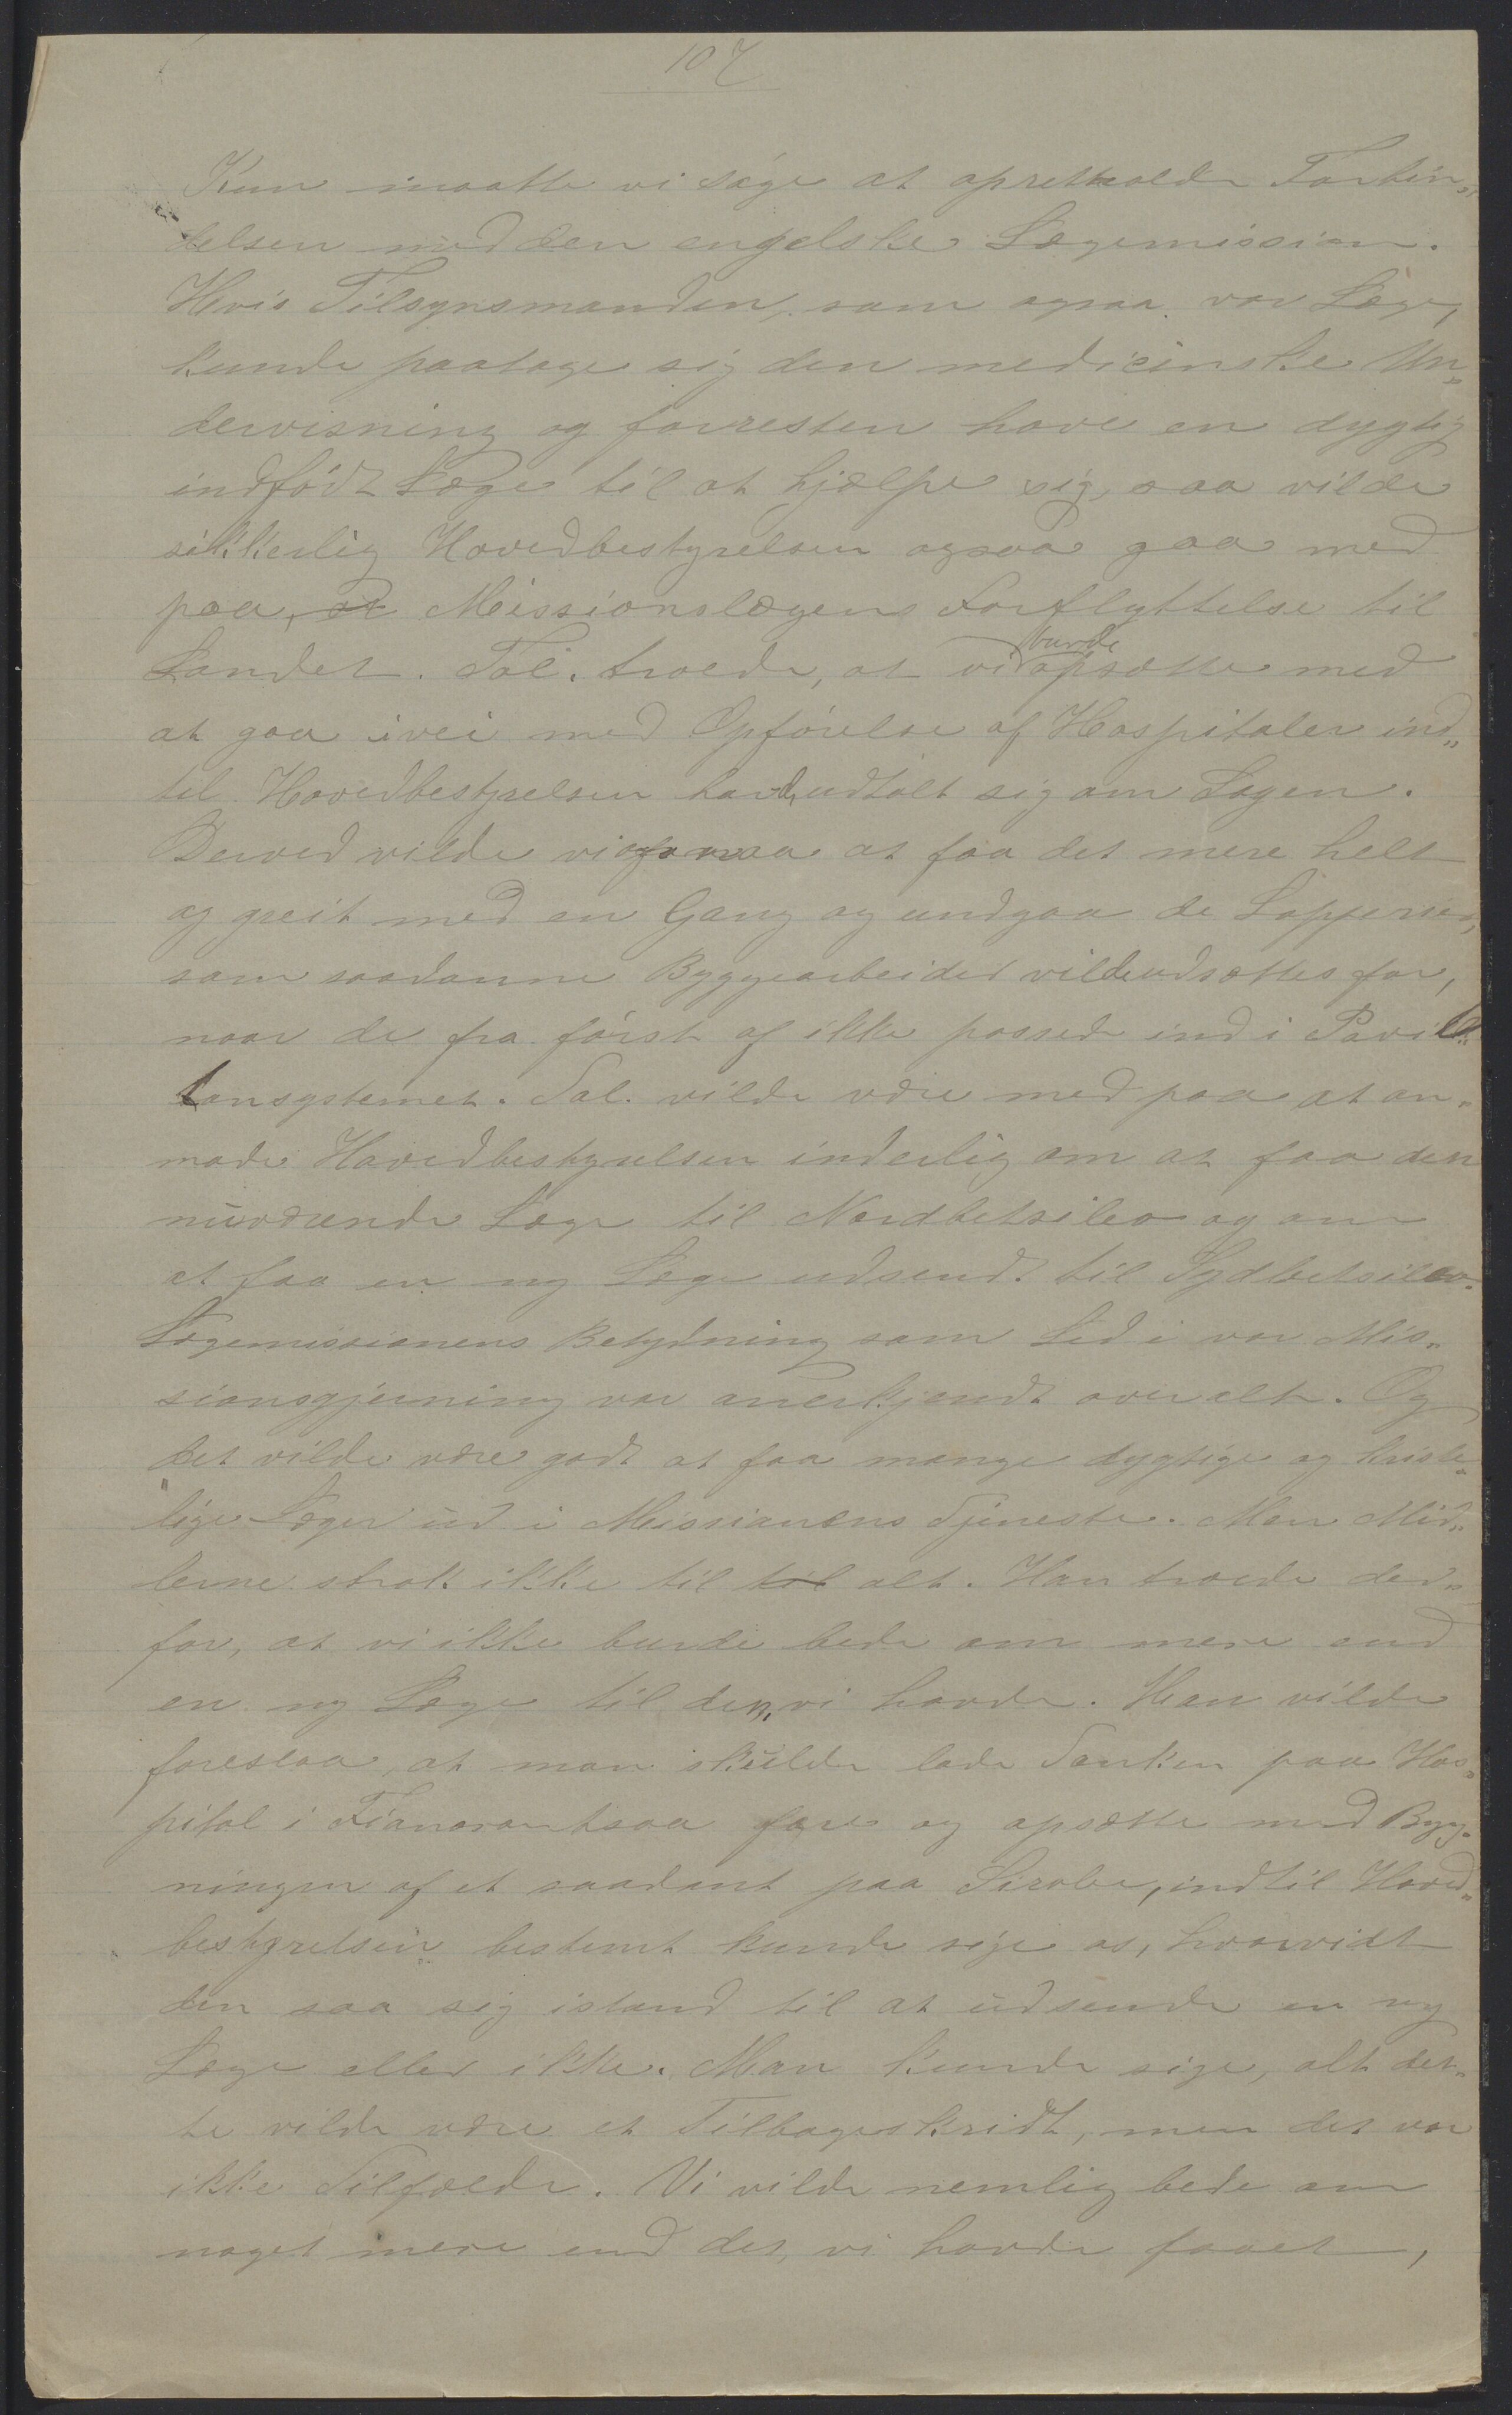 107
Kun maatte vi søge at opretholde Forbin„
delsen med den engelske Lægemission.
Hvis Tilsynsmanden, som ogsaa var Læge,
kunde paatage sig den medicinske Un„
dervisning og forresten have en dygtig
indfødt Læge til at hjælpe sig, saa vilde
sikkerlig Hovedbestyrelsen ogsaa gaa med
paa, at Missionslægens Forflyttelse til
Landet. Tal. troede, at vi burde opsætte med
at gaa ivei med Opførelse af Hospitaler ind„
til Hovedbestyrelsen havde udtalt sig om Sagen.
Derved vilde vi ogsaa at faa det mere helt
og greit med en Gang og undgaa de Lapperier,
som saadanne Byggearbeider vilde udsættes for,
naar de fra først af ikke passede ind i Pavil„
lonsystemet. Tal. vilde være med paa at an„
mode Hovedbestyrelsen inderlig om at faa den
nuværende Læge til Nordbetsileo og om
at faa en ny Læge udsendt til Sydbetsileo.
Lægemissionens Betydning som Led i vor Mis„
sionsgjerning var anerkjendt overalt. Og
det vilde være godt at faa mange dygtige og kriste„
lige Læger ud i Missionens Tjeneste. Men Mid„
lerne strak ikke til til alt. Han troede der„
for, at vi ikke burde bede om mere end
en ny Læge til den, vi havde. Han vilde
foreslaa, at man skulde lade Tanken paa Hos„
pital i Fianarantsoa fare og opsætte med Byg„
ningen af et saadant paa Sirabe, indtil Hoved„
bestyrelsen bestemt kunde sige os, hvorvidt
den saa sig istand til at udsende en ny
Læge eller ikke. Man kunde sige, alt det„
te vilde være et Tilbageskridt, men det var
ikke Tilfælde. Vi vilde nemlig bede om
noget mere end det, vi havde faaet,